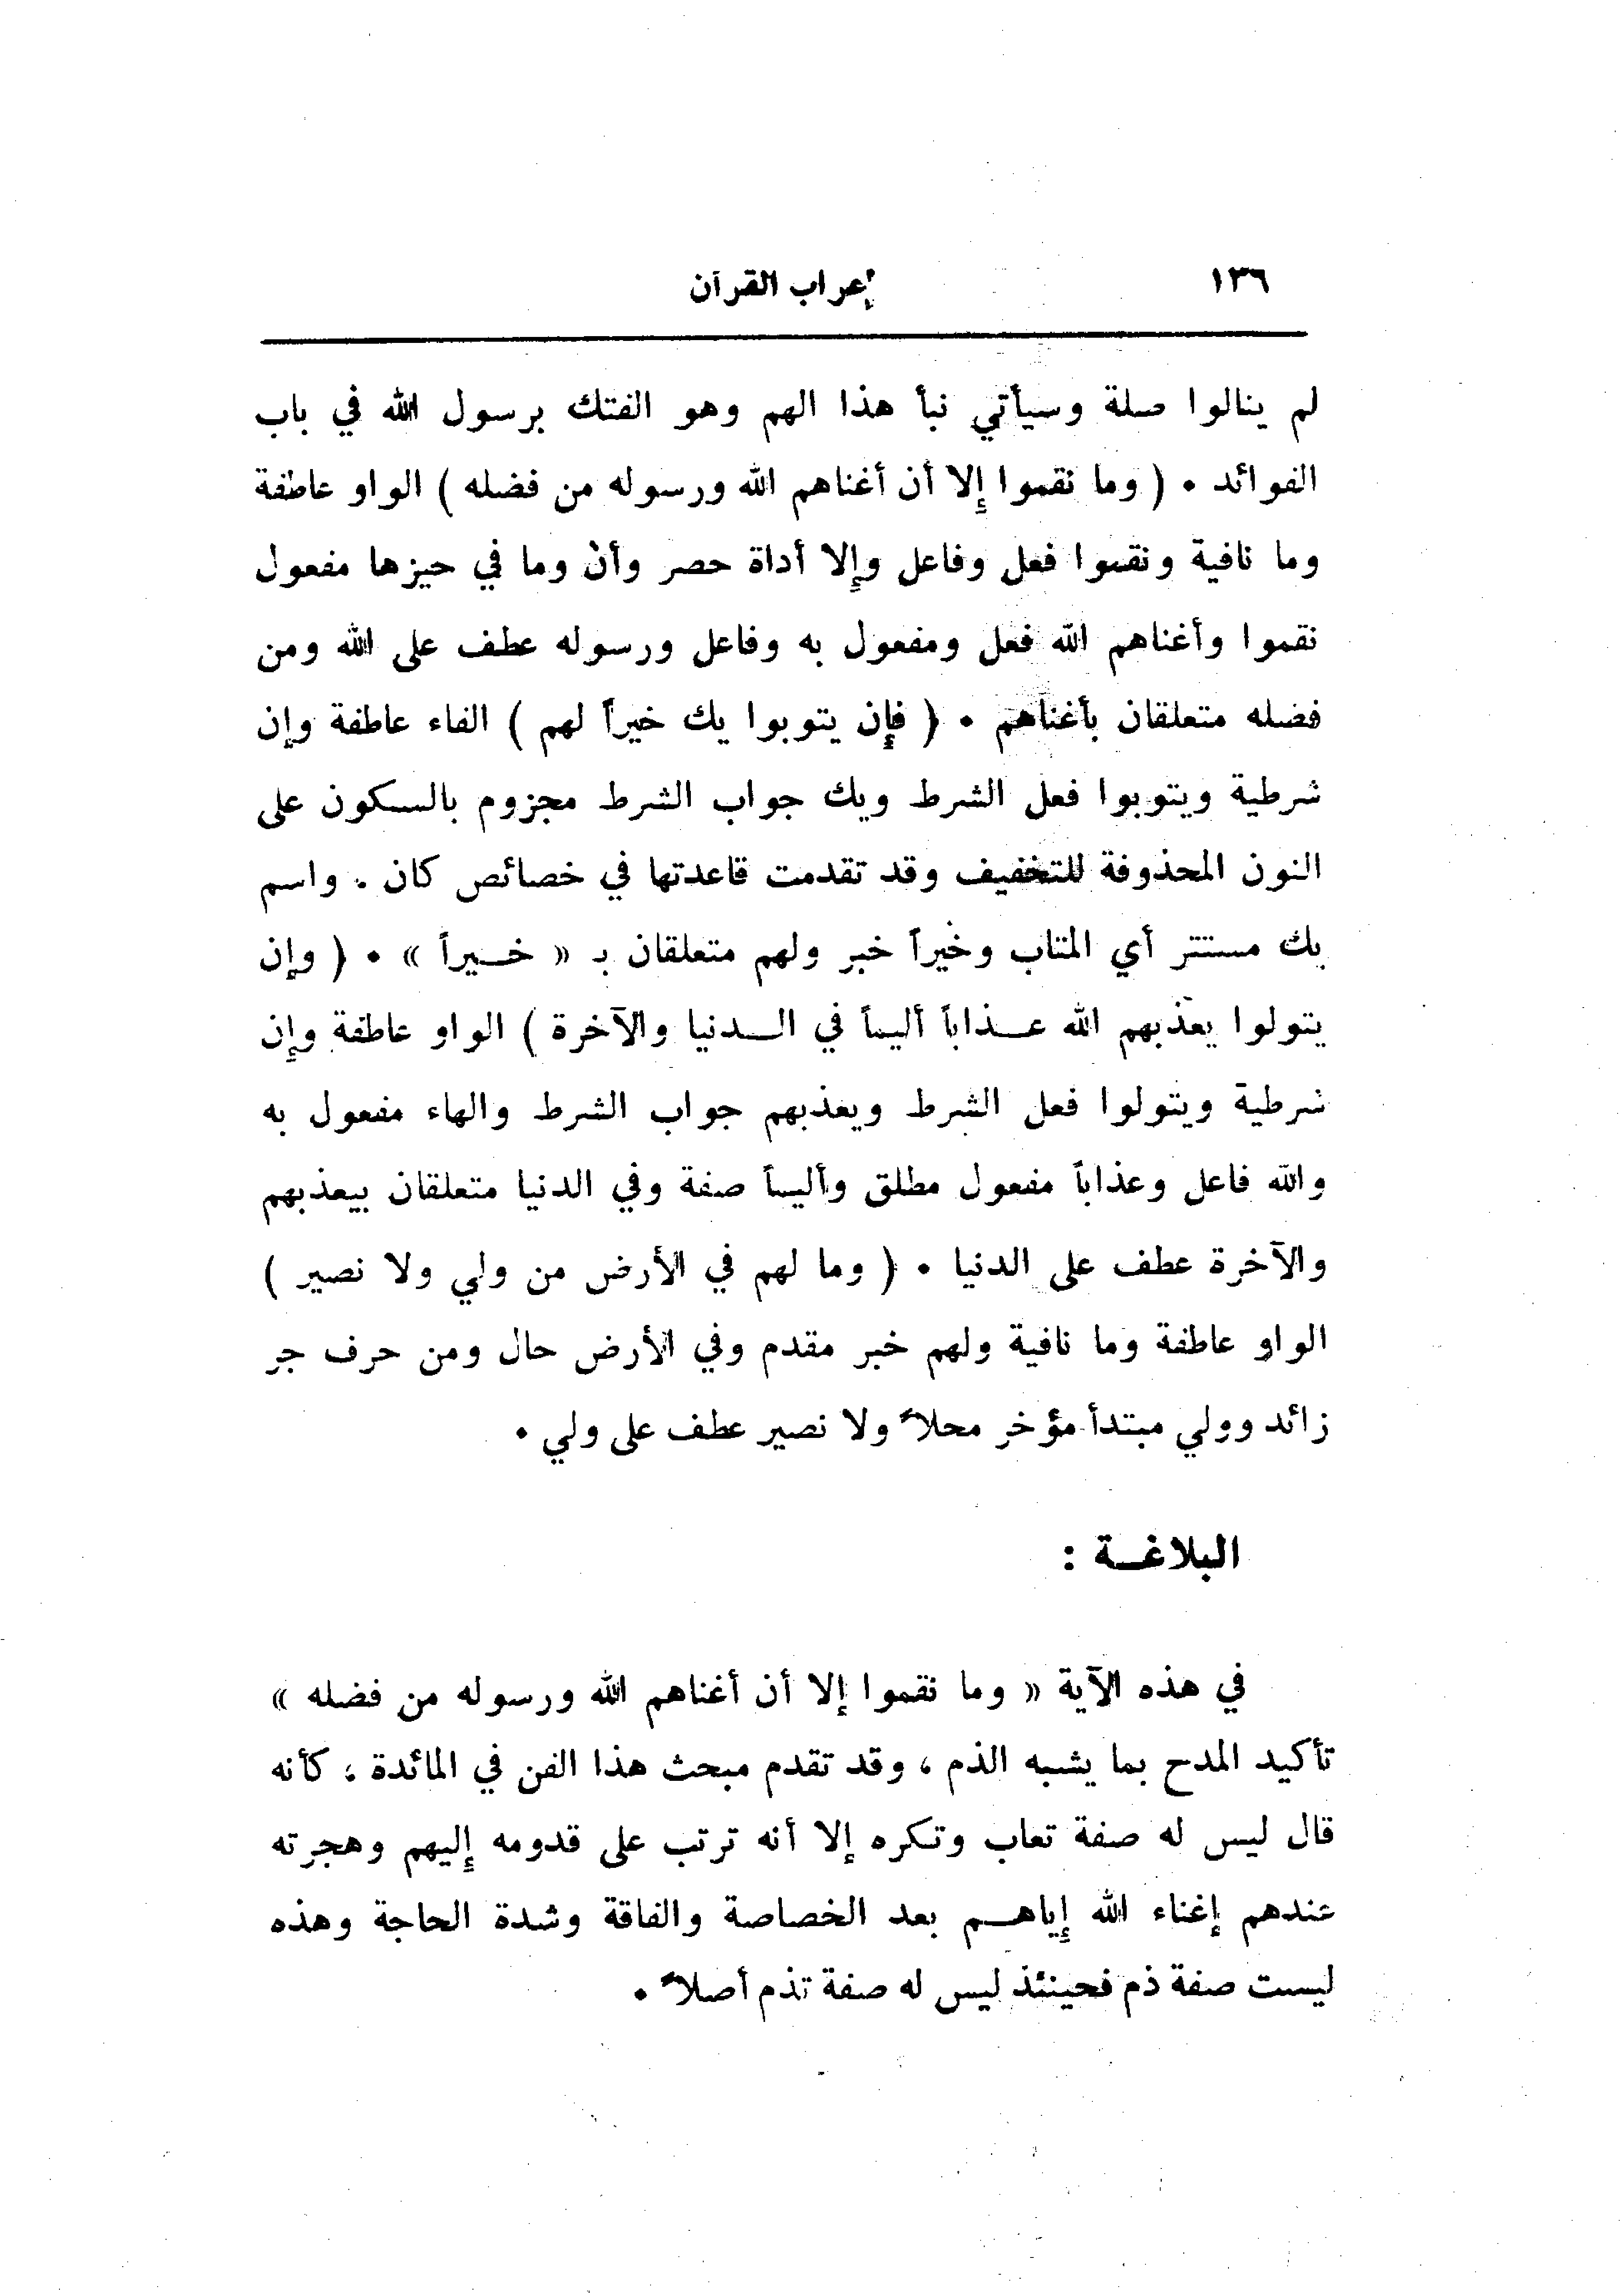 ١٣٦ إعراب القرآن
لم ينالوا صلة وسيأتي نبأ هذا الهم وهو الفتك برسول الله في باب
الفوائد • ( وما نقموا إلا أن أغناهم الله ورسوله من فضله ) الواو عاطفة
وما نافية ونقموا فعل وفاعل وإلا أداة حصر وأنْ وما في حيزها مفعول
نقموا وأغناهم الله فعل ومفعول به وفاعل ورسوله عطف على الله ومن
فضله متعلقان بأغناهم • ( فإن يتوبوا يك خيراً لهم ) الفاء عاطفة وإن
شرطية ويتوبوا فعل الشرط ويك جواب الشرط مجزوم بالسكون على
النون المحذوفة للتخفيف وقد تقدمت قاعدتها في خصائص كان . واسم
يك مستتر أي المتاب وخيراً خبر ولهم متعلقان بـ « خــيراً » • ( وإن
يتولوا يعذبهم الله عــذاباً أليماً في الــدنيا والآخرة ) الواو عاطفة وإن
شرطية ويتولوا فعل الشرط ويعذبهم جواب الشرط والهاء مفعول به
والله فاعل وعذاباً مفعول مطلق وأليماً صفة وفي الدنيا متعلقان بيعذبهم
والآخرة عطف على الدنيا • ( وما لهم في الأرض من ولي ولا نصير )
الواو عاطفة وما نافية ولهم خبر مقدم وفي الأرض حال ومن حرف جر
زائد وولي مبتدأ مؤخر محلاً ولا نصير عطف على ولي •
البلاغــة :
في هذه الآية « وما نقموا إلا أن أغناهم الله ورسوله من فضله »
تأكيد المدح بما يشبه الذم ، وقد تقدم مبحث هذا الفن في المائدة ، كأنه
قال ليس له صفة تعاب وتكره إلا أنه ترتب على قدومه إليهم وهجرته
عندهم إغناء الله إياهــم بعد الخصاصة والفاقة وشدة الحاجة وهذه
ليست صفة ذم فحينئذ ليس له صفة تذم أصلاً •